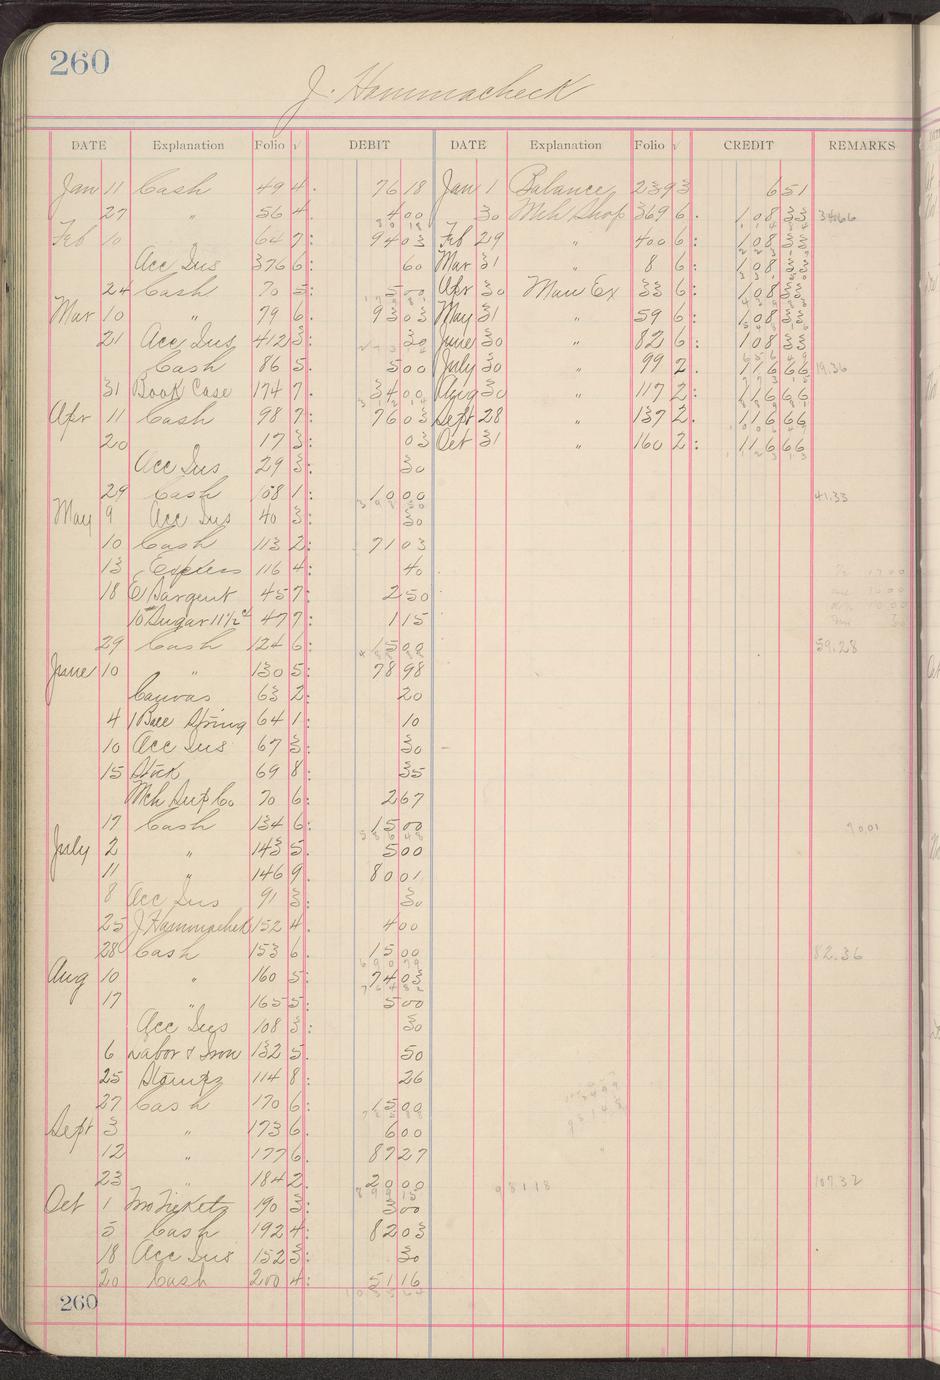 260
J. Hammacheck
DATE Explanation Folio √ DEBIT DATE Explanation Folio √ CREDIT REMARKS
Jan 11 Cash 49 4. 76 18 Jan 1 Balance 239 3 6 51
27 " 56 4 4 00 30 Mch Shop 369 6. 108 33 34.66
Feb 10 64 7: 94 03 Feb 29 " 400 6: 108 33
Acc Ins 376 6: 60 Mar 31 " 8 6: 108 33
24 Cash 70 5: 5 00 Apr 30 Man Ex 33 6: 108 33
Mar 10 " 79 6. 93 03 May 31 " 59 6: 108 33
21 Acc Ins 412 3: 30 June 30 " 82 6: 108 33
Cash 86 5. 5 00 July 30 " 99 2. 116 66 19.36
31 Book Case 174 7. 34 00 Aug 30 " 117 2: 116 66
Apr 11 Cash 98 7: 76 03 Sept 28 " 137 2. 116 66
20 17 3: 03 Oct 31 " 160 2: 116 66
Acc Ins 29 3: 30
29 Cash 108 1: 10 00 41.33
May 9 Acc Ins 40 3: 30
10 Cash 113 2: 71 03
13 Express 116 4: 40
18 E Sargent 45 7: 2 50
10# Sugar 11½ ct 47 7: 1 15
29 Cash 124 6: 15 00 59.28
June 10 " 130 5: 78 98
Canvas 63 2: 20
4 1 Ball String 64 1: 10
10 Acc Ins 67 3: 30
15 Stock 69 8: 35
Mch Sup Co 70 6: 2 67
17 Cash 134 6: 15 00 70 01
July 2 " 143 5. 5 00
11 " 146 9. 80 01
8 Acc Ins 91 3: 30
25 J Hammachek 152 4. 4 00
28 Cash 153 6. 15 00 82.36
Aug 10 " 160 5: 74 03
17 " 165 5: 5 00
Acc Ins 108 3: 30
6 Labor & Iron 132 5. 50
25 Stamps 114 8: 26
27 Cash 170 6: 15 00
Sept 3 " 173 6. 6 00
12 " 177 6. 87 27
23 184 2. 20 00 981 18 107 32
Oct 1 Tickets 190 3: 3 00
5 Cash 192 4: 82 03
18 Acc Ins 152 3: 30
20 Cash 200 4: 51 16
260